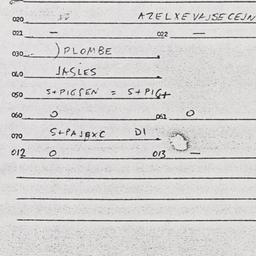 020 AZELXEVAJSECEJN
021 — 022 —
030 )PLOMBE
060 JASLES
050 S+PIGSEN = S+PIG+
060 0 061 0
070 S+PAJBXC DI
012 0 013 —